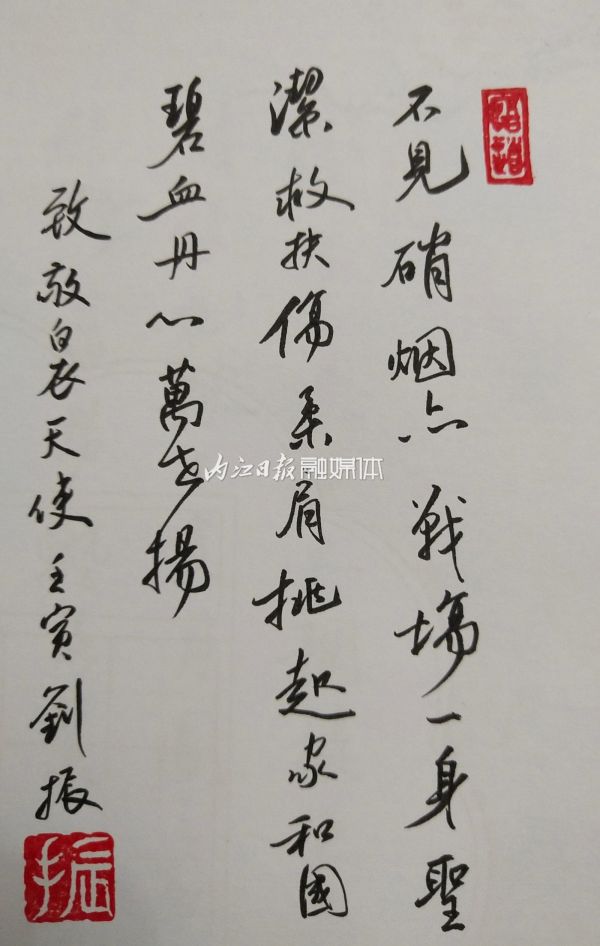 不見硝烟亦戰場一身聖
潔救扶傷柔肩挑起家和國
碧血丹心萬世揚
致敬白衣天使壬寅劉振
振
内江日报融媒体